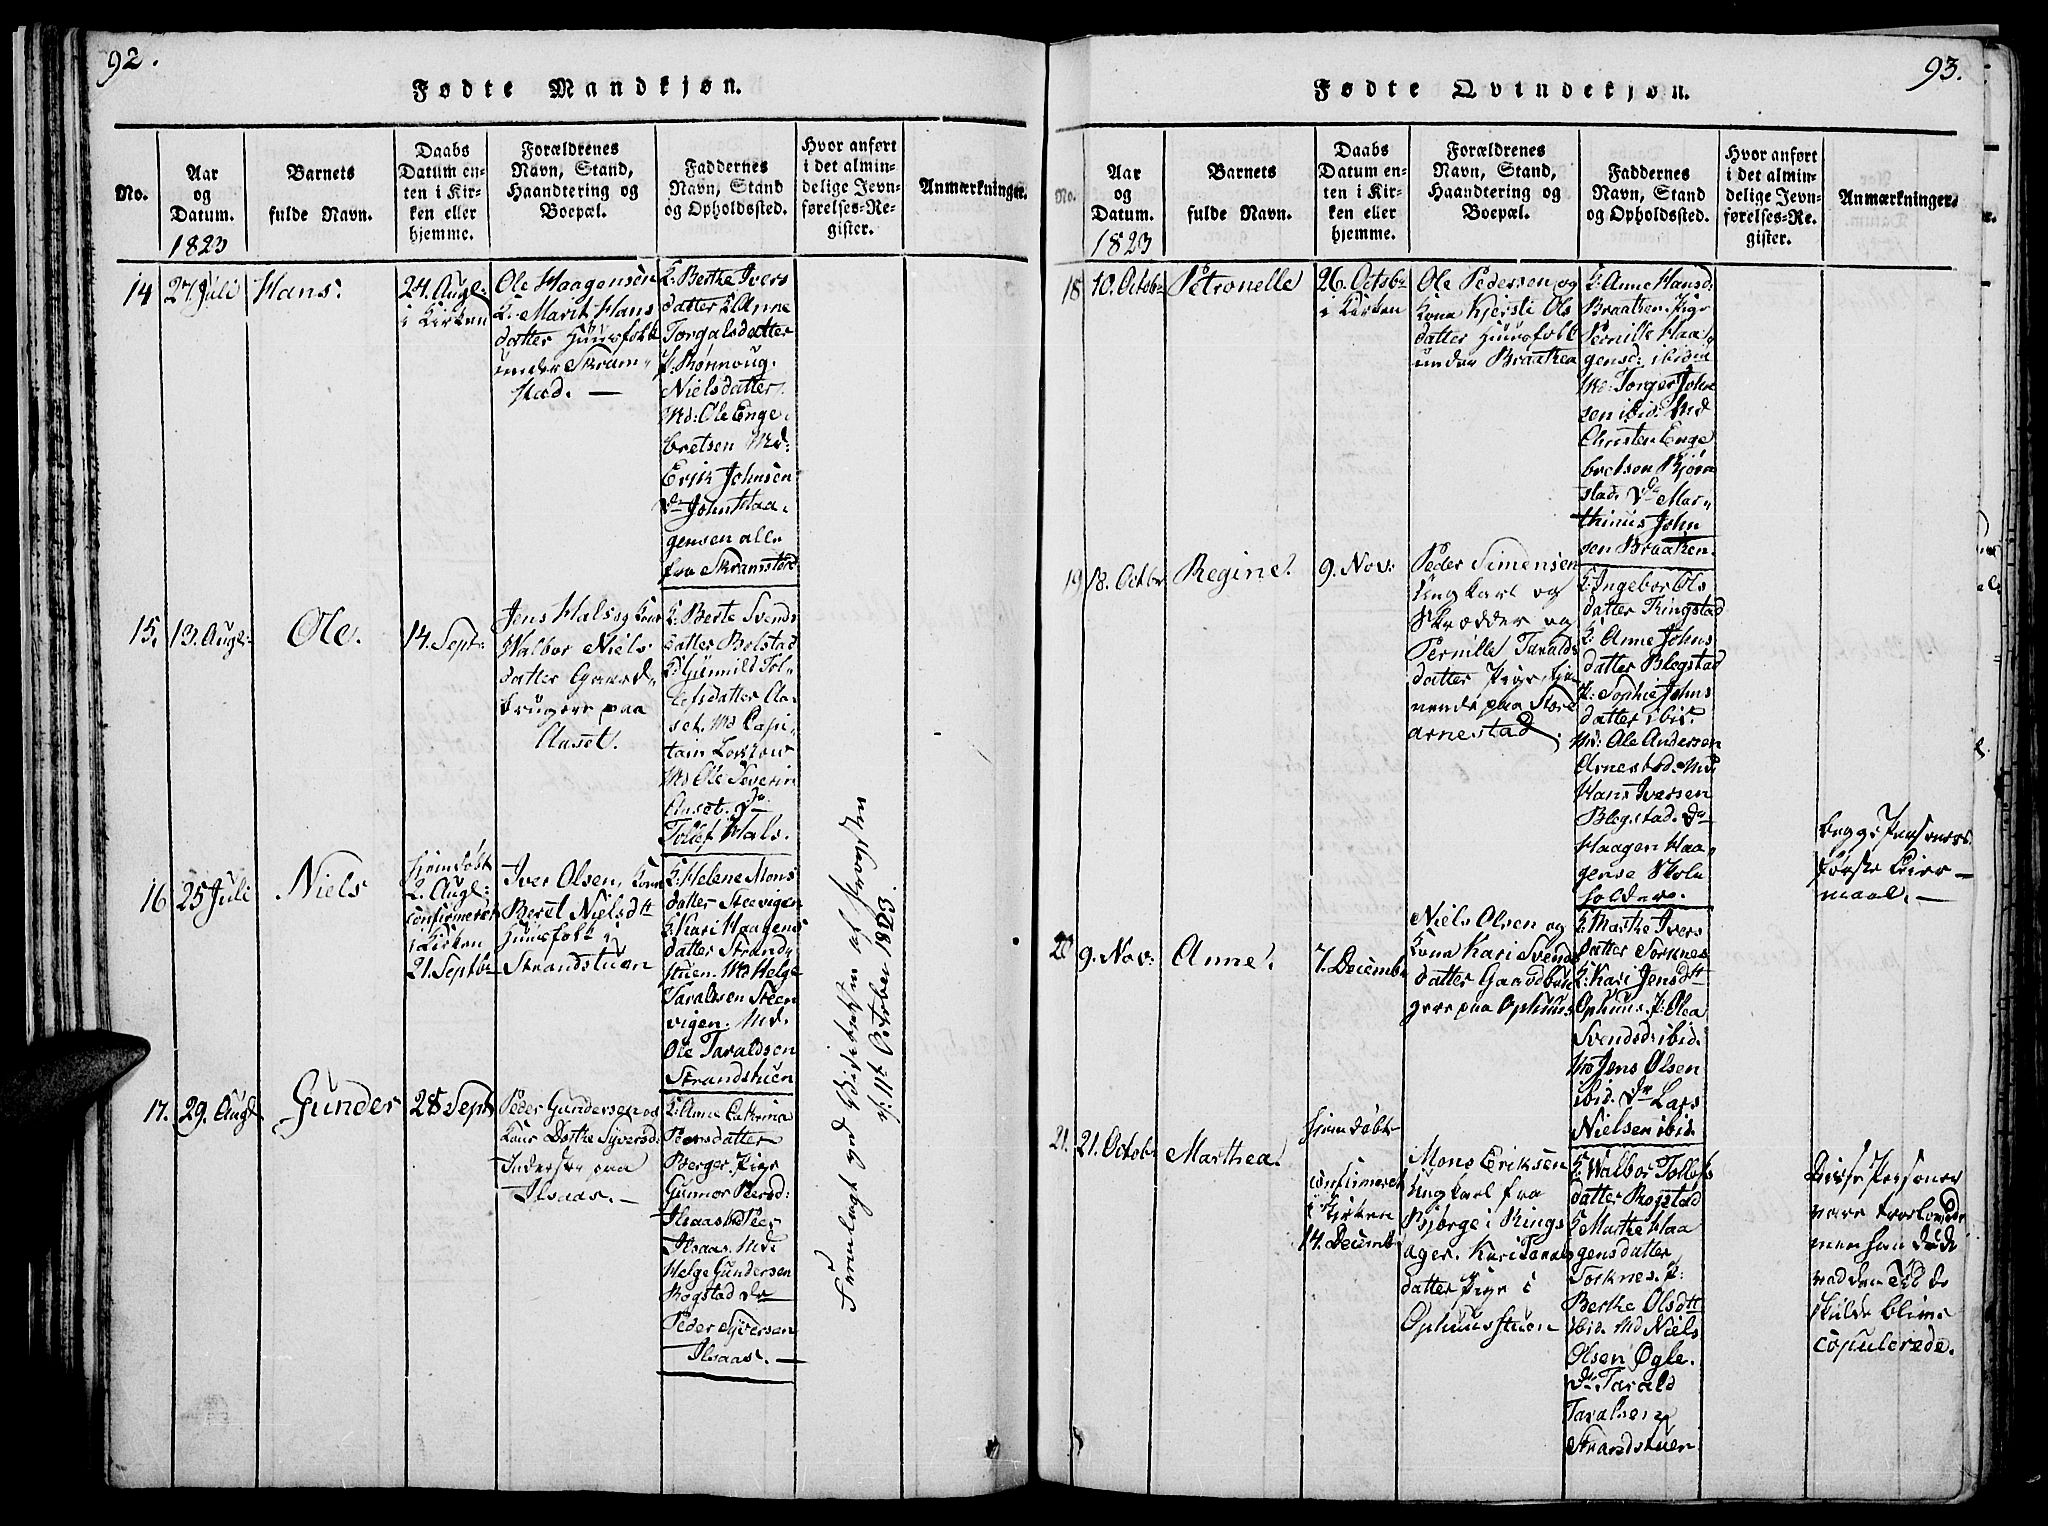 92.
Fødte Mandkjøn.
No.
Aar
og
Datum.
1823
Barnets
fulde Navn.
Daabs
Datum en-
ten i Kir-
ken eller
hjemme.
Forældrenes
Navn, Stand,
Haandtering og
Boepæl.
Faddernes
Navn, Stand
og Opholdssted.
Hvor anført
i det almin-
delige Jevn-
førelses-Re-
gister.
Anmærkninger.
14
27 Juli
Hans.
24. Augl:
i Kirken
Ole Haagensen
K. Marit Hans
datter Huusfolk
under Skram-
stad. —
K: Berthe Ivers
datter K Anne
Torgalsdatter
P. Rønnoug.
Nielsdatter.
Md: Ole Enge.
bretsen Md:
Erik Johnsen
do John Haa-
gensen alle
fra Skramstad
15.
13. Augl:
Ole.
14. Sept:
Jens Hals og Kone
Walbor Niels
datter Gaard-
brugere paa
Aaset.
K: Berte Svends
datter Bolstad
K: Gunnild Tol-
lefsdatter Aa-
set. Md Capi-
tain
Md Ole Severin
Aaset. do
Tollef Hals.
16
25 Juli
Niels
hjemdøbt
2. Augl:
confirmeret
i Kirken
21. Septbr
Iver Olsen, Kone
Beret Nielsdtt
Huusfolk i
Strandstuen
K: Helene Mons
datter Steevigen
K: Kari Haagens
datter Strand-
stuen. Md Helge
Taraldsen Steen
vigen. Md.
Ole Taraldsen
Strandstuen
17.
29. Augl
Gunder
28 Sept
Peder Gundersen og
Kone Dorthe Syversd.
Inderster paa
Ilsaas. —
K: Anne Cathrina
Peersdatter
Berger. Pige
Gunnor Peersd:
Ilsaas Md Peer
Ilsaas. Md:
Helge Gundersen
Rogstad do
Peder Syversen
Ilsaas. —
Fremlagt ved Visitatsen af Provsten
d: 11te October 1823.
93.
Fødte Qvindekjøn.
No.
Aar
og
Datum.
1823
Barnets
fulde Navn.
Daabs
Datum en-
ten i Kir-
ken eller
hjemme.
Forældrenes
Navn, Stand,
Haandtering og
Boepæl.
Faddernes
Navn, Stand
og Opholdssted.
Hvor anført
i det almin-
delige Jevn-
førelses-Re-
gister.
Anmærkninger.
18
10. Octobr
Petronelle
26. Octobr
i Kirken
Ole Pedersen og
Kone Kjersti Ols
datter Huusfolk
under Braaten
K: Anne Hansd:
Braaten. Pige
Pernille Haa-
gensd: ibid
Md: Torger John
sen ibid: Md
Christen Enge
bretsen Bjørn
stad. do Mar-
thinus John
sen Braaten.
19
18. Octbr
Regine.
9. Nov:
Peder Simensen
Ungkarl og
Skrædder og
Pernille Taralds
datter Pige, tje-
nende paa Store
arnestad.
K: Ingebor Ols
datter Ringstad
K: Anne Johns
datter Blegstad
P: Sophie Johns
datter ibid.
Md: Ole Andersen
Arnestad. Md:
Hans Iversen
Blegstad. do
Haagen Haa-
gense Skole
holder.
begge Personers
første Leier-
maal. —
20
9. Nov:
Anne.
7. Decembr
Niels Olsen og
Kone Kari Svends
datter Gaardbru
gere paa Ophuus
K: Marthe Ivers
datter Sorknes
K: Kari Jensdtt
Ophuus. P: Olea
Svendsd: ibid.
Md Jens Olsen
ibid. do Lars
Nielsen ibid.
21.
21. Octob:
Marthea.
hjemdøbt
confirmeret
i Kirken
14. Decembr
Mons Eriksen
Ungkarl fra
Bjørge i Rings
ager. Kari Taralds
datter Pige i
Ophuusstuen
K: Walbor Tollefs
datter Rogstad
K Marthe Haa
gensdatter
Sorknes. P:
Berthe Olsdtt
ibid. Md Niels
Olsen Øgle.
do Tarald
Taralsen
Strandstuen
Disse Personer
vare trolovede
men han døde
ved den Tid de
skulde blive
copulerede.